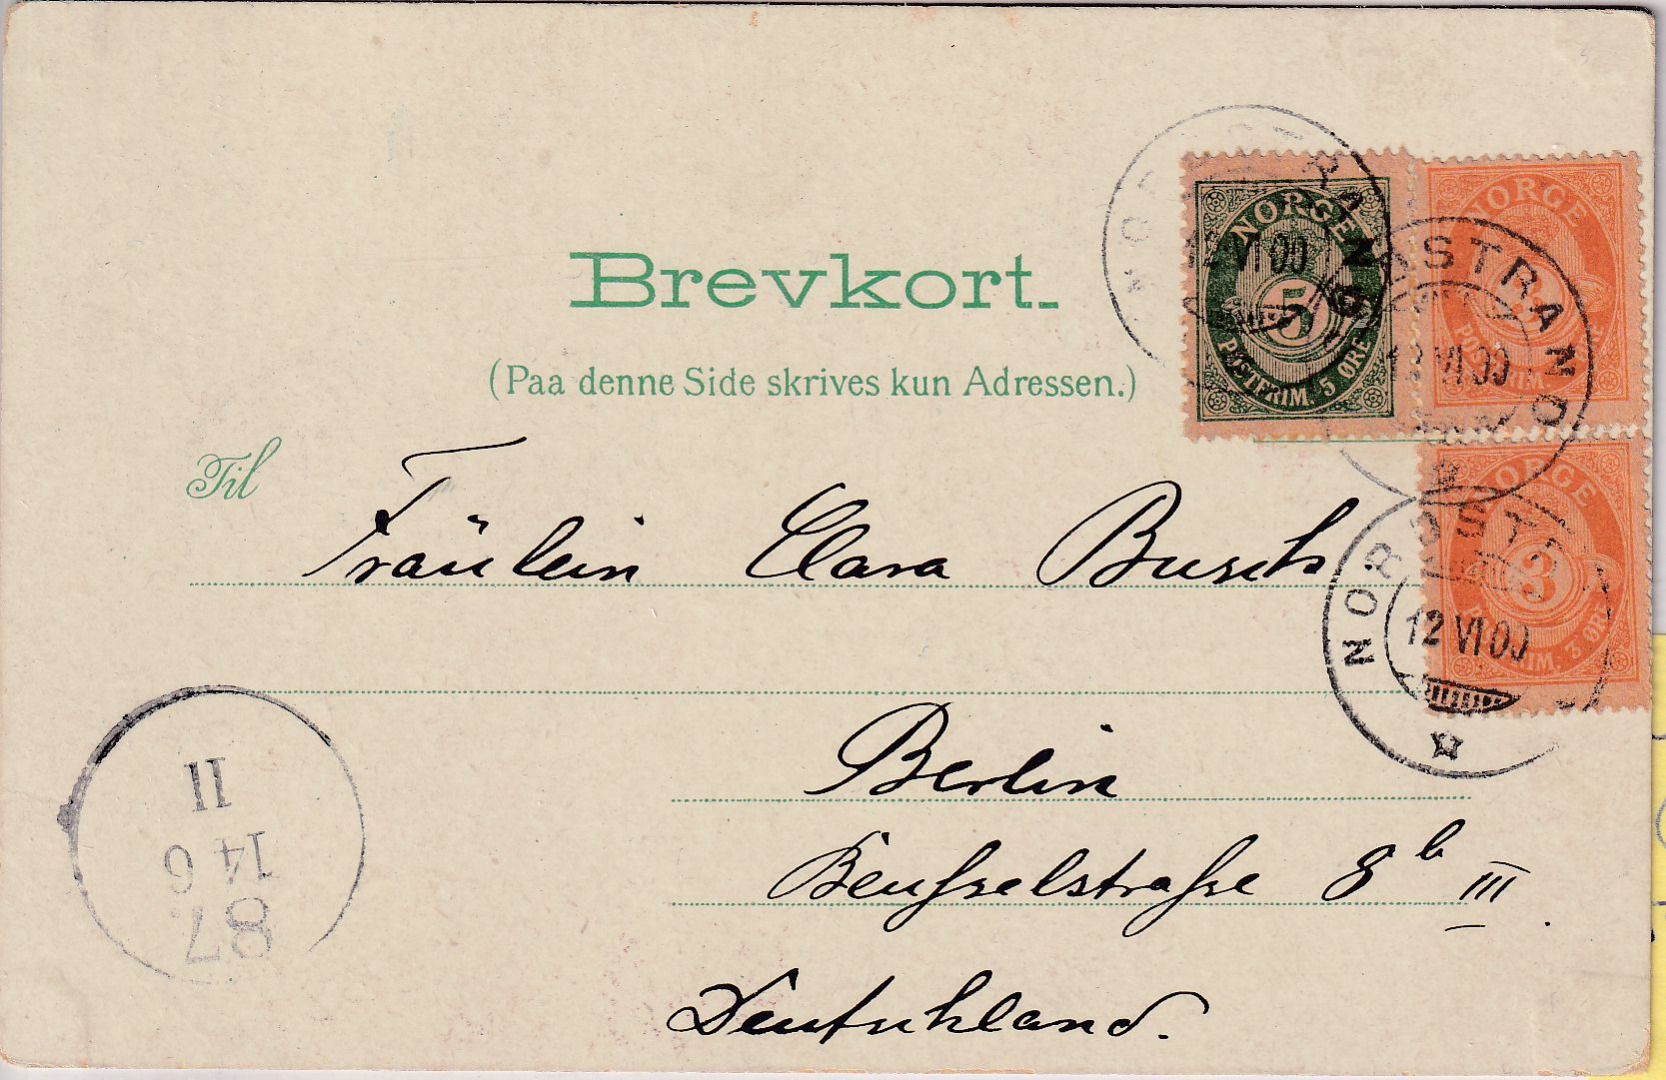 Brevkort.
(Paa denne Side skrives kun Adressen.)
NORGE
POSTFRIM. 5 ØRE
5
NORGE
NORGE
POSTFRIM. 3 ØRE
3
12 VI 00
NORDSTRAND
12 VI 00
12 VI 00
Til
Fräulein Clara Busch
Berlin
Beußelstraße 8b III.
Deutschland.
87
14 6
11